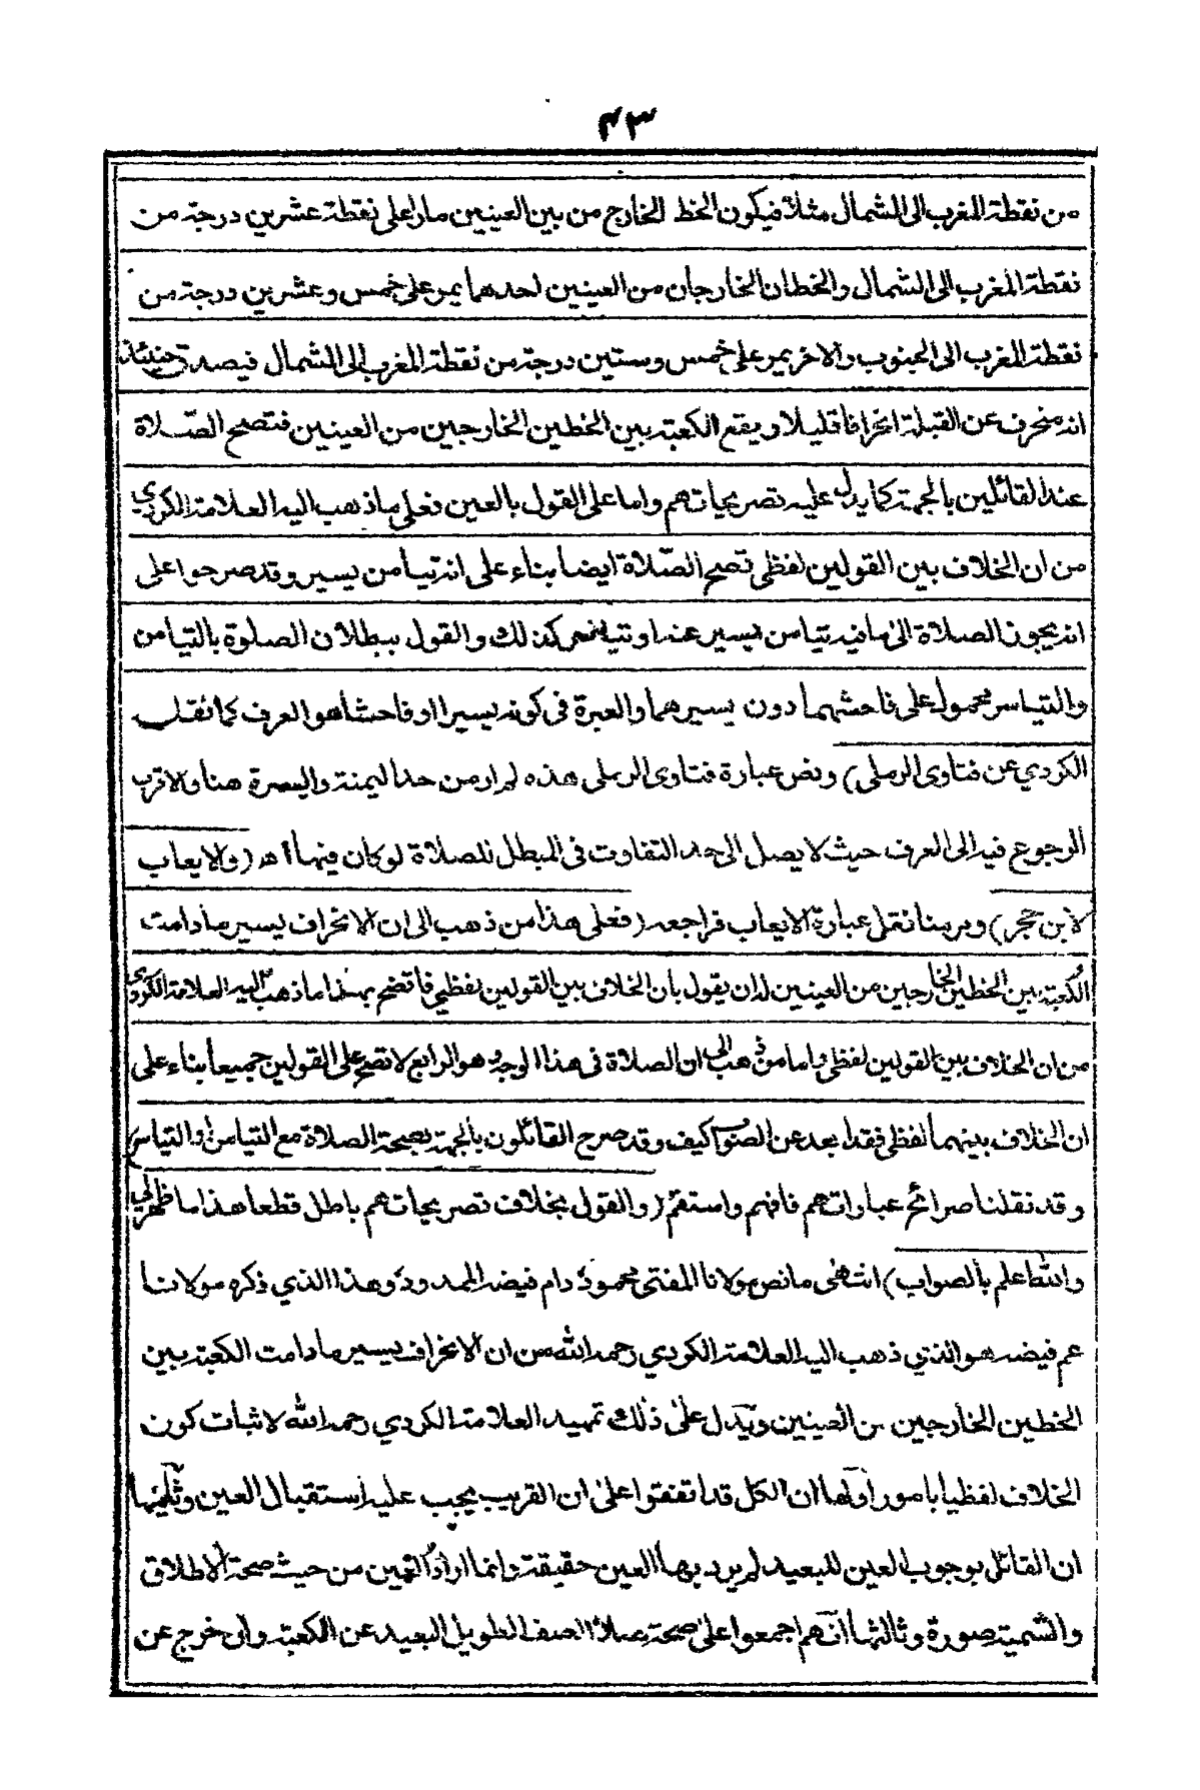 ٤٣
من نقطة المغرب الى الشمال مثلا فيكون الخط الخارج من بين العينين مارا على نقطة عشرين درجة من
نقطة المغرب الى الشمال والخطان الخارجان من العينين احدهما يمر على خمس وعشرين درجة من
نقطة المغرب الى الجنوب والاخر يمر على خمس وستين درجة من نقطة المغرب الى الشمال فيصدق حينئذ
انه منحرف عن القبلة انحرافا قليلا ويقع الكعبة بين الخطين الخارجين من العينين فتصح الصّلاة
عند القائلين بالجهة كما يدل عليه تصريحاتهم واما على القول بالعين فعلى ما ذهب اليه العلامة الكردي
من ان الخلاف بين القولين لفظي تصح الصّلاة ايضا بناء على انه تيامن يسير وقد صرحوا على
انه يجوز الصلاة الى ما فيه تيامن يسير عندا وتياسر كذلك والقول ببطلان الصلوة بالتيامن
والتياسر محمول على فاحشهما دون يسيرهما والعبرة في كونه يسيرا او فاحشا هو العرف كما نقله
الكردي عن فتاوى الرملي) ونص عبارة فتاوى الرملي هذه لم ار من حد اليمنة واليسرة هنا والاقرب
الرجوع فيه الى العرف حيث لا يصل الى حد التفاوت في المبطل للصلاة لو كان فيها أ ه (والايعاب
لابن حجر) ومر منا نقل عبارة الايعاب فراجعه (فعلى هذا من ذهب الى ان الانحراف يسير ما دامت
الكعبة بين الخطين الخارجين من العينين له ان يقول بان الخلاف بين القولين لفظي فاتضح بهذا ما ذهب اليه العلامة الكردي
من ان الخلاف بين القولين لفظي واما من ذهب الى ان الصلاة في هذا الوجه وهو الرابع لا تصح على القولين جميعا بناء على
ان الخلاف بينهما لفظي فقد ابعد عن الصواب كيف وقد صرح القائلون بالجهة بصحة الصلاة مع التيامن والتياسر
وقد نقلنا صرائح عباراتهم فافهم واستقم (والقول بخلاف تصريحاتهم باطل قطعا هذا ما ظهر لي
والله اعلم بالصواب) انتهى ما نص مولانا المفتي محمود دام فيضه الممدود وهذا الذي ذكره مولانا
عم فيضه هو الذي ذهب اليه العلامة الكردي رحمه الله من ان الانحراف يسير ما دامت الكعبة بين
الخطين الخارجين من العينين ويدل على ذلك تمهيد العلامة الكردي رحمه الله لاثبات كون
الخلاف لفظيا بامور اولها ان الكل قد اتفقوا على ان القريب يجب عليه استقبال العين وثانيها
ان القائل بوجوب العين للبعيد لم يرد بها العين حقيقة وانما اراد العين من حيث صحة الاطلاق
والتسمية صورة وثالثها انهم اجمعوا على صحة صلاة الصف الطويل البعيد عن الكعبة وان خرج عن